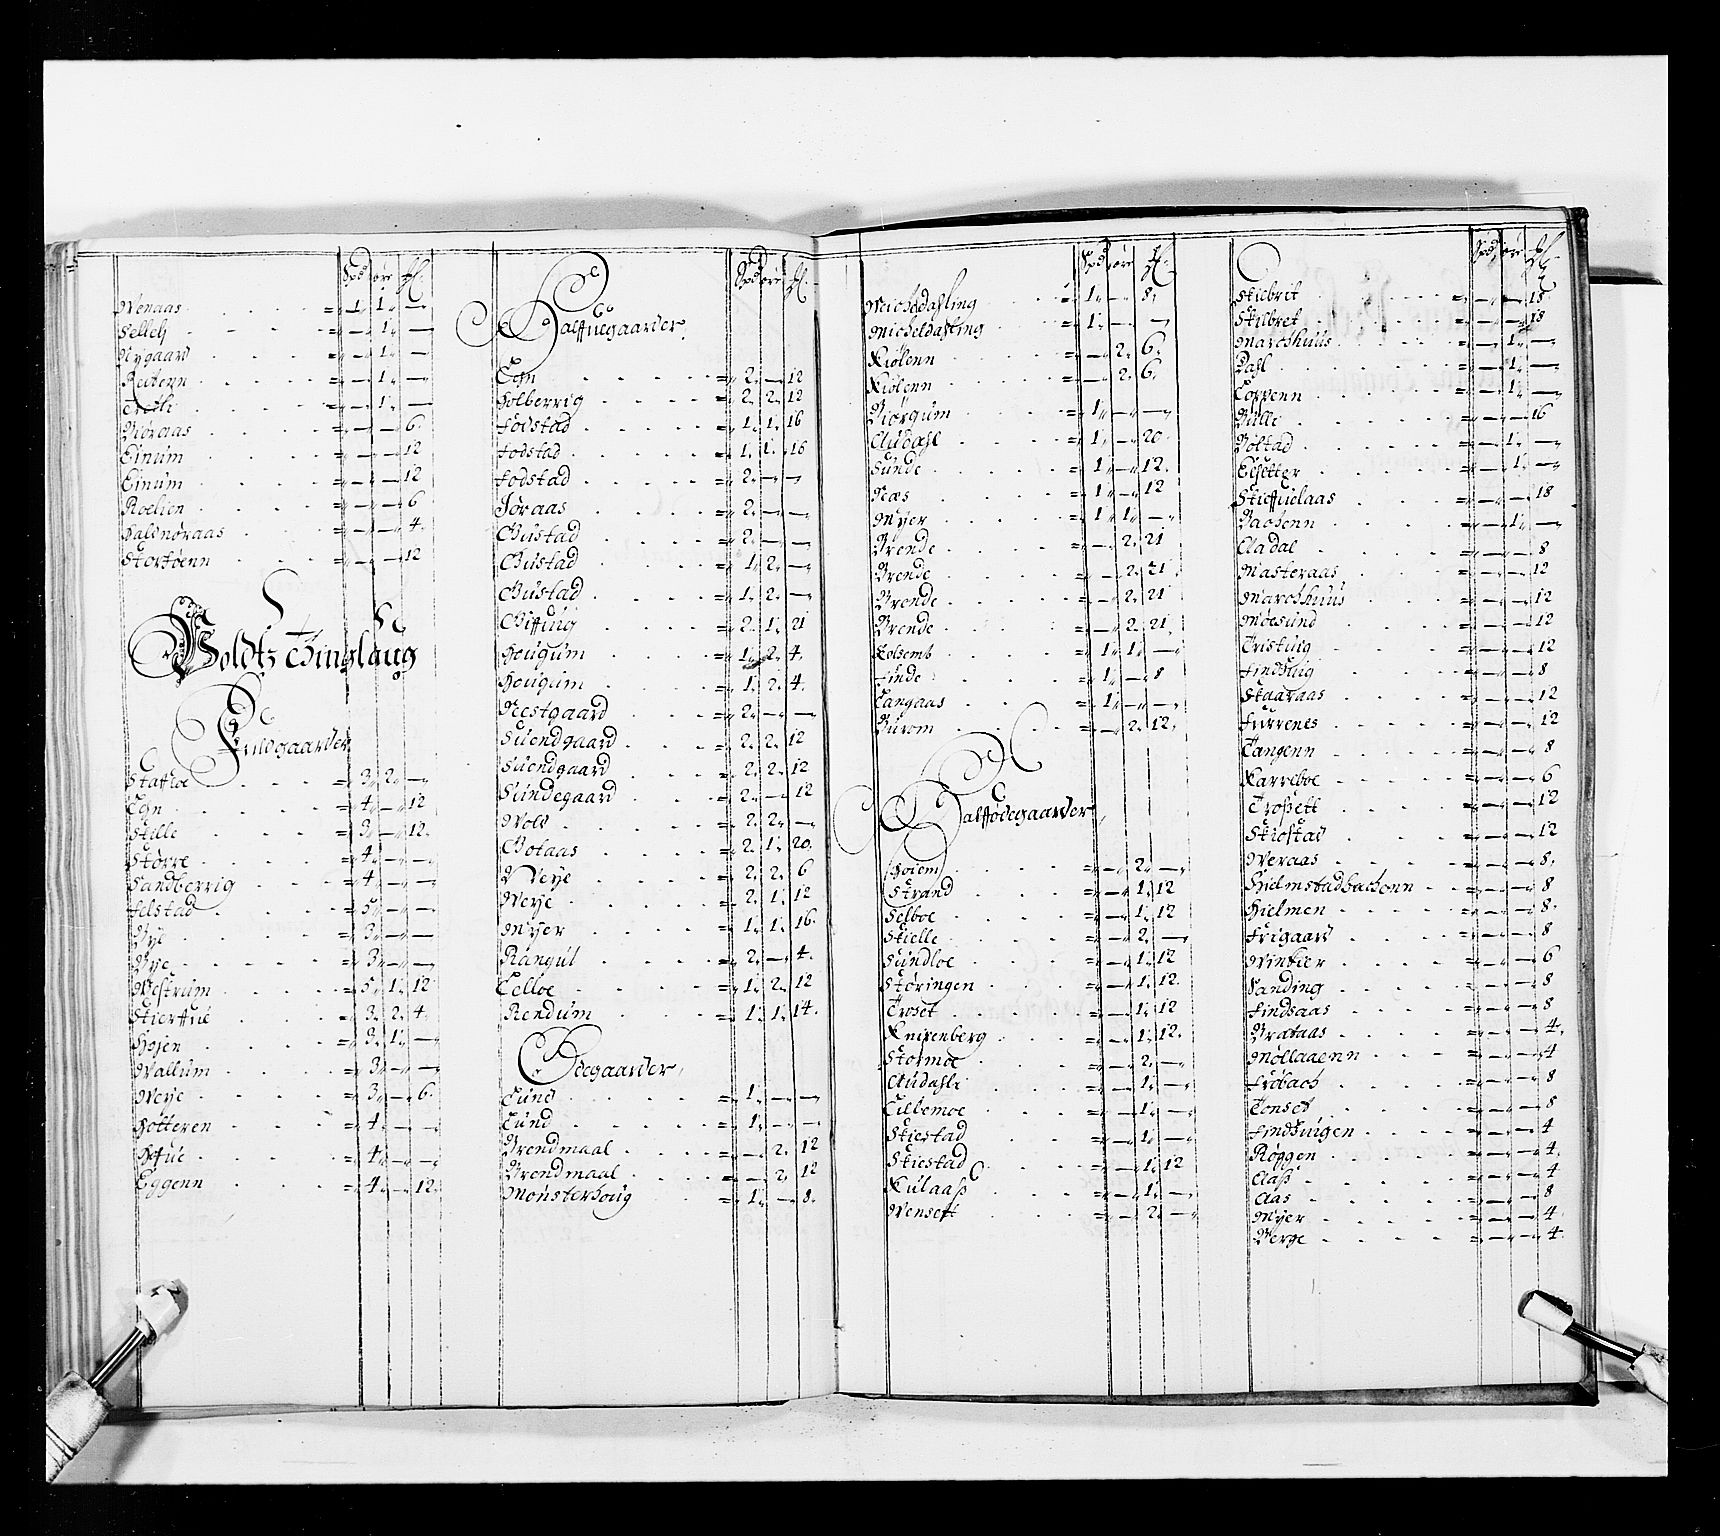 Spd øre
Wenaas = — 1 — 1 —
Selleh = — 1 —
Nygaard = — 1 —
Reitenn = — 1 —
= — 1 —
Niøraas = — — 6
Einum = — — 12
Einum = — — 12
Roelien = — — 6
Haldnøraas = — — 4
Storføenn = — — 12
Woldtz Tinglaug
Fuldgaarder
Staffloe = 3 2 —
Egn = 4 — 12
Stelle = 3 — 12
Større = 4 — —
Sandberrig = 4 — —
Felstad = 5 — —
Bye = 3 — —
Bye = 3 — —
Westrum = 5 1 12
Skierffue = 3 2 4
Hojen = 3 1 —
Wallum = 3 — —
Weye = 3 — 6
Hotteren = 4 — —
Hffue = 4 — —
Eggenn = 4 — 12
Spd øre
Halffuegaarder
Egn = 2 — 12
Holberrig = 2 2 12
Fodstad = 1 1 16
Fodstad = 1 1 16
Fodstad = 2 — —
Joraas = 2 — —
Gustad = 2 — —
Gustad = 1 2 —
Gustad = 1 2 —
Giffuig = 2 1 21
Hougum = 1 2 4
Hougum = 1 2 4
Nestgaard = 2 — —
Suendgaard = 2 2 12
Suendgaard = 2 2 12
Sundegaard = 2 — 12
Wold = 2 2 —
Gotaas = 2 1 20
Weye = 2 2 6
Weye = 2 1 12
Myer = 1 1 16
Rangul = 2 — 4
Celloe = 1 2 12
Rendum = 1 1 14
Ødegaarder
Lund = 1 — —
Lund = 1 — —
Brendmaal = — 2 12
Brendmaal = — 2 12
Monsterhoug = 1 — 8
Spd øre
Micheldasling = 1 — 8
Micheldasling = 1 — —
Kiølenn = — 2 6
Kiølenn = — 2 6
Biørgum = 1 — —
Audahl = 1 — 20
Sunde = 1 — 12
Næs = 1 — 12
Myer = 1 1 —
Brende = — 2 21
Brende = — 2 21
Brende = — 2 21
Brende = — 2 21
Folsemb = 1 1 —
Finde = 1 — 8
Langaas = 1 — —
Burom = — 2 12
Halffødegaarder
Hoiem = — 2 —
Strand = — 1 12
Selboe = — 1 12
Skielle = — 2 —
Sundloe = — 1 12
Støringen = — 1 12
Troset = — 1 12
Knipenberg = — 1 12
Stormoe = — 2 —
Audahli = — 1 —
Lillemoe = — 1 —
Skiestad = — 1 —
Skiestad = — 1 12
Kulaaß = — 1 —
Wensett = — 2 —
Spd øre
Skiebrit = — — 18
Skilbret = — — 18
Marchhuus = — 1 —
Dahl = — 1 —
Loppenn = — 1 —
Bille = — — 16
Boltad = — 1 —
= — 1 —
Stieffuelaas = — — 18
Bachenn = — 1 —
Cladal = — — 8
Masteraas = — — 12
Marchhuus = — — 12
Moesund = — — 12
Tristuig = — — 12
Findsuig = — — 8
Skaaraas = — — 12
Furrenes = — — 12
Tangenn = — — 8
Karreboe = — — 6
Trosett = — — 12
Skiostad = — — 12
Weraas = — — 8
Hielmstadbachenn = — — 8
Hielmen = — — 8
Frigaard = — — 8
Winter = — — 6
Sanding = — — 8
Findsaas = — — 8
Brataas = — — 4
Møllaaenn = — — 4
Frøbach = — — 8
Tonset = — — 8
Findsuigen = — — 4
Røggen = — — 4
Aaß = — — 4
Aas = — — 8
Myer = — — 4
Berge = — — 4